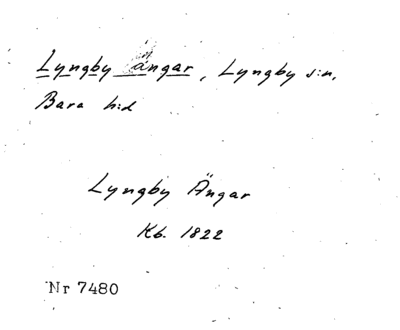 Lyngby ängar, Lyngby s:n,
Bara h:d
Lyngby Ängar
Kb. 1822
Nr 7480